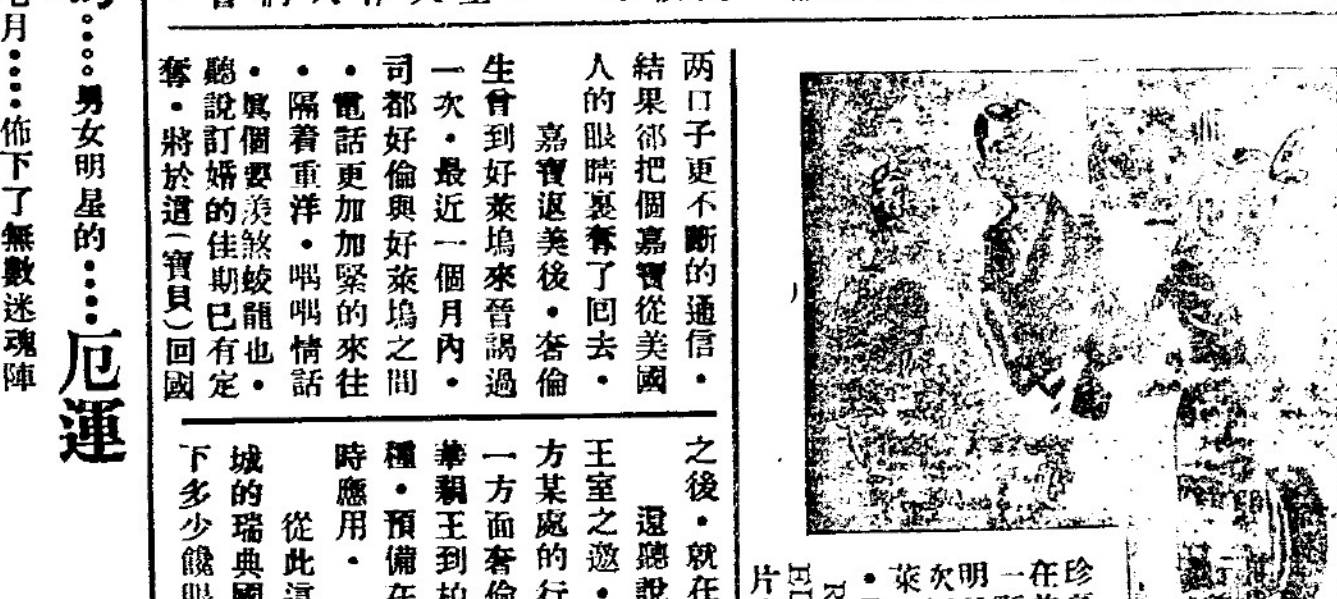 两口子更不斷的通信・
結果都把個嘉寶從美國
人的眼睛裏奪了回去・
嘉寶返美後・奢倫
生曾到好萊塢來晉謁過
一次・最近一個月內・
司都好倫與好萊塢之間
・電話更加加緊的來往
・隔着重洋・喁喁情話
・眞個要羨煞蛟龍也・
聽說訂婚的佳期已有定
奪・將於這（寶貝）回國
之後・就在
還聽說
王室之邀・
方某處的行
一方面奢倫
華親王到柏
種・預備在
時應用・
從此這
城的瑞典國
下多少饞眼
男女明星的・・・・厄運
七月・・・・佈下了無數迷魂陣
珍
在
一
明
次
萊
片